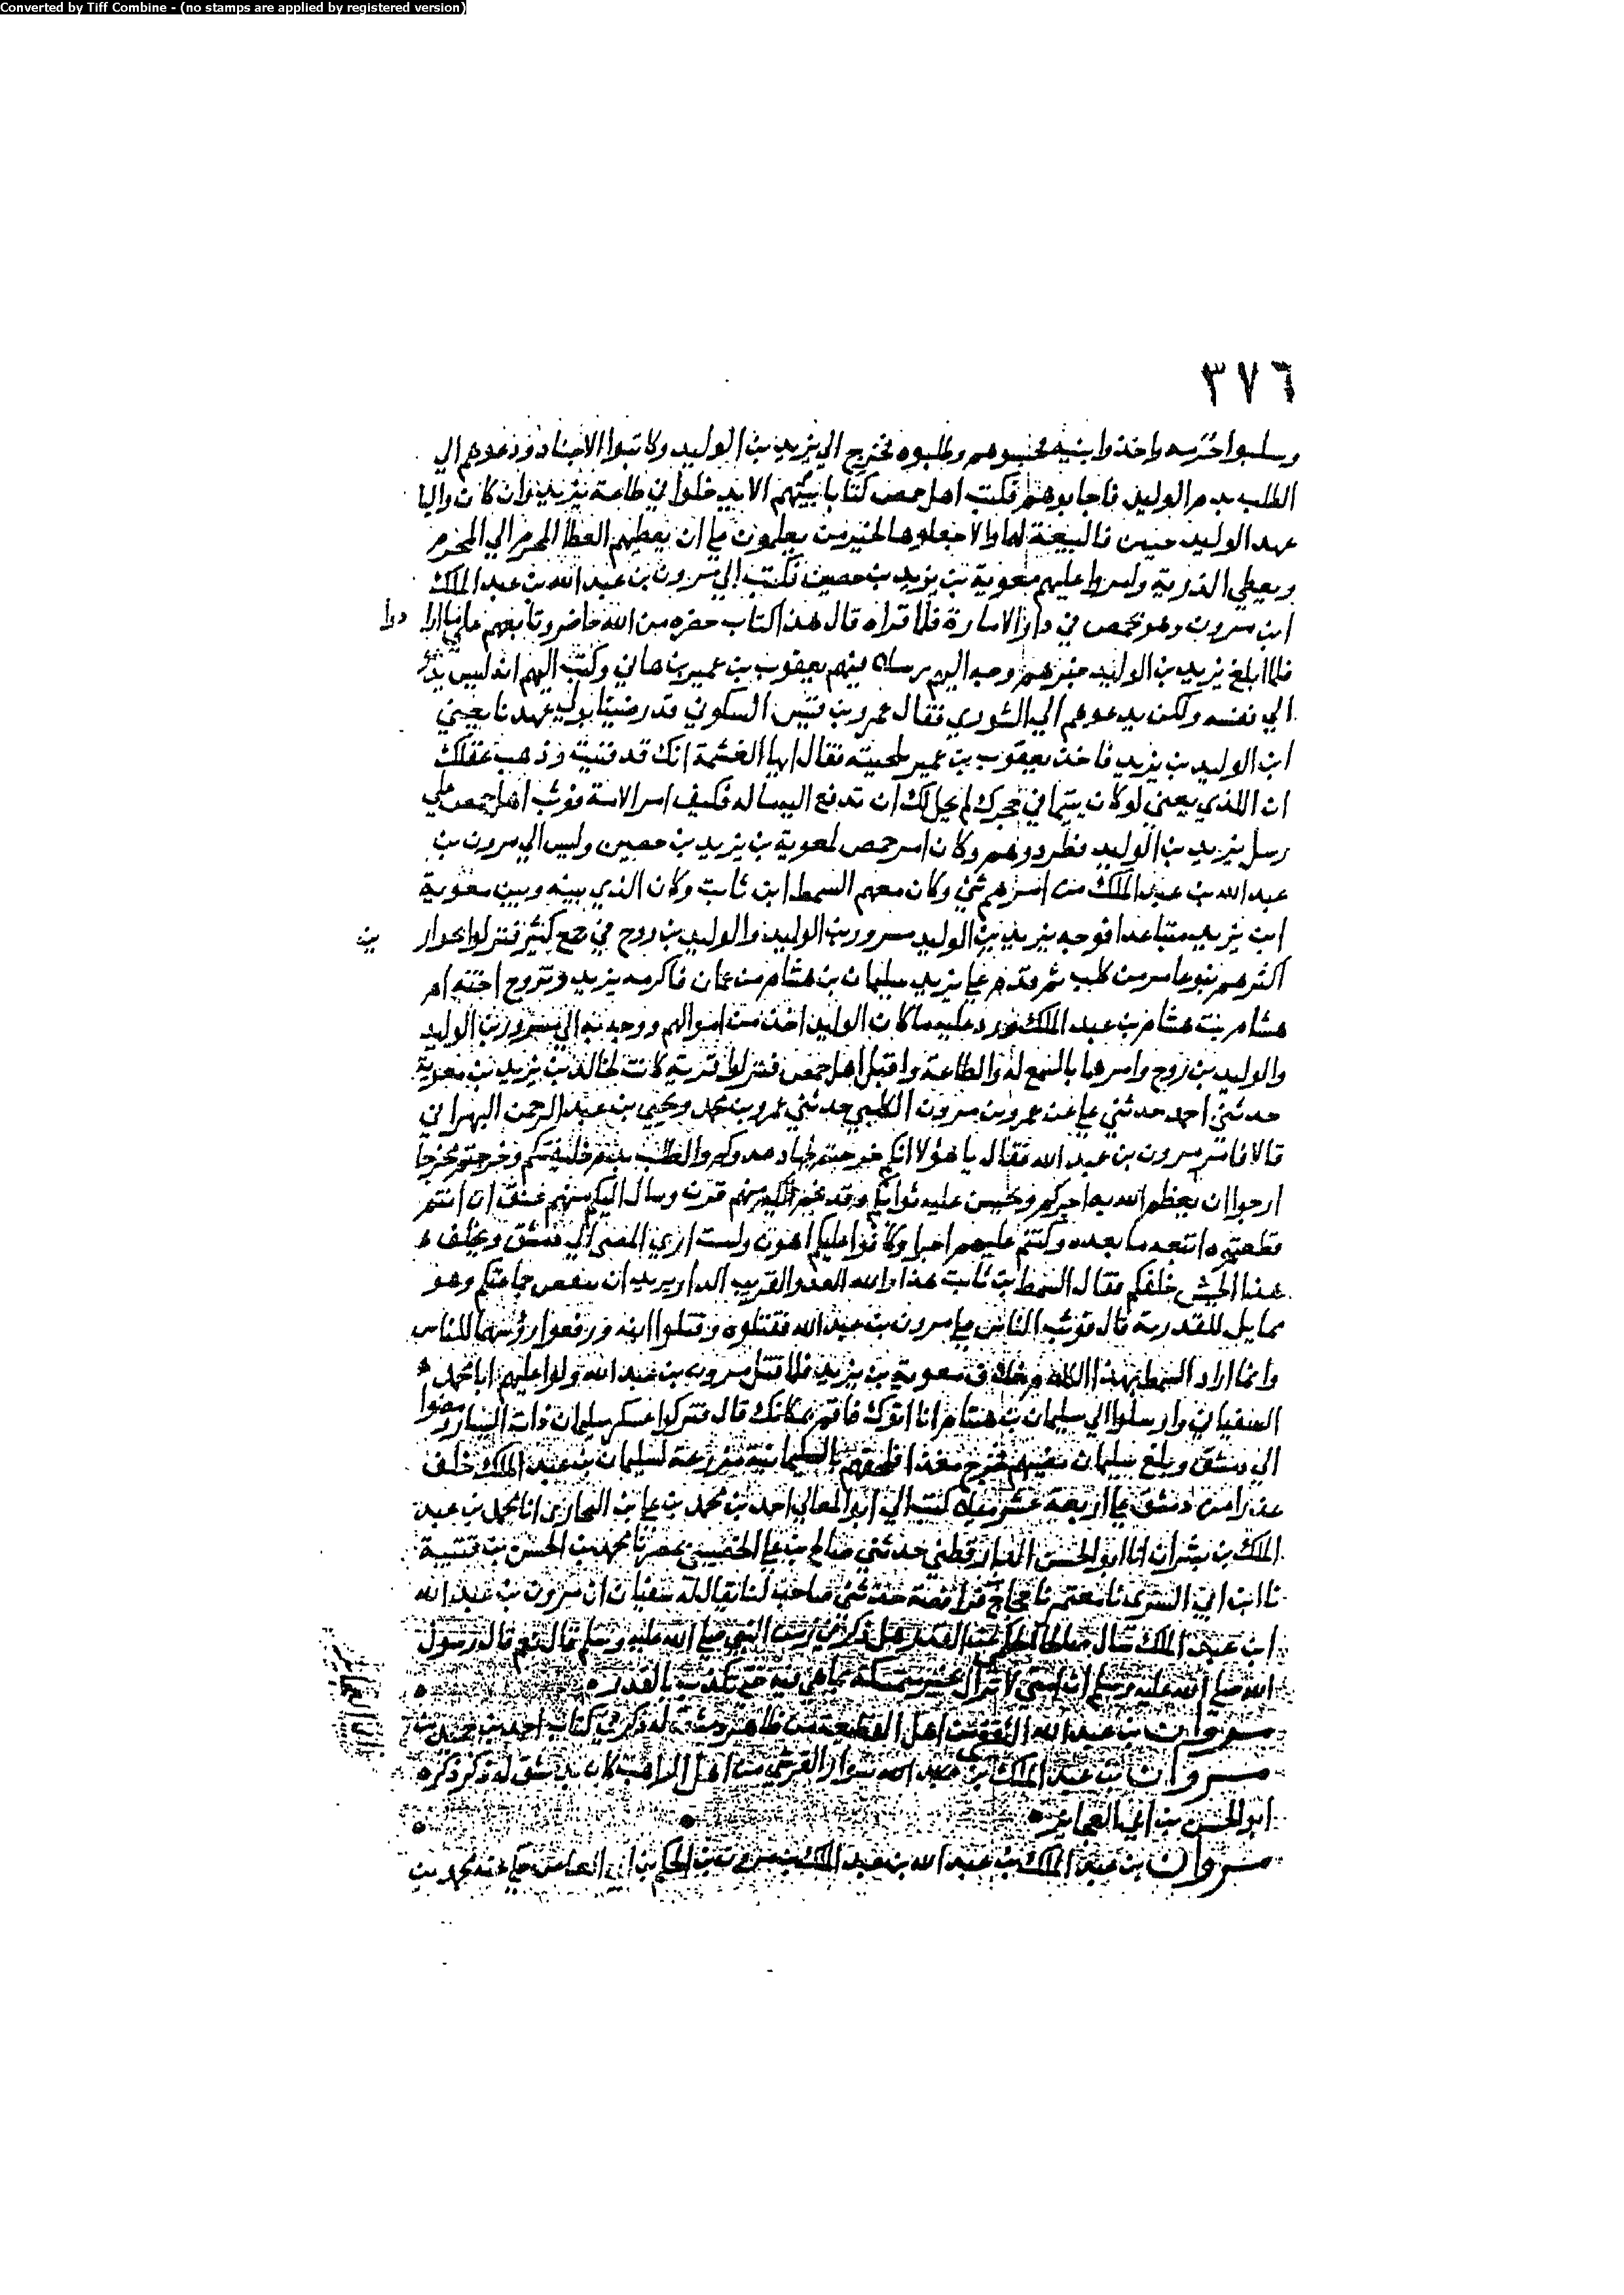 Converted by Tiff Combine - (no stamps are applied by registered version)
٣٧٦
وسلبوا حرمه واخذوا ابنيه فحبسوهم وطلبوه فخرج الي يزيد بن الوليد وكاتبوا الاجناد ودعوهم الي
الطلب بدم الوليد فاجابوهم فكتب اهل حمص كتابا بينهم الا يدخلوا في طاعة يزيد وان كان وليا
عهد الوليد حيين فالبيعة لهما والا جعلوها لخير من يعلمون علي ان يعطيهم العطا المحرم الي المحرم
ويعطي الذرية وامروا عليهم معوية بن يزيد بن حصين فكتب الي مرون بن عبد الله بن عبد الملك
ابن مرون وهو بحمص في دار الامارة فلما قراه قال هذا كتاب حضره من الله حاضر وتابعهم علي ما ارا دوا
فلما بلغ يزيد بن الوليد خبرهم وجه اليهم رسلا فيهم يعقوب بن عمير بن هاني وكتب اليهم انه ليس يدعو
الي نفسه ولكن يدعوهم الي الشوري فقال عمرو بن قيس السكوني قد رضينا بولي عهدنا يعني
ابن الوليد بن يزيد فاخذ يعقوب بن عمير بلحيته فقال ايها العشمة انك قد فنيت وذهب عقلك
ان الذي يعني لو كان يتيما في حجرك لم يحل لك ان تدفع اليه ماله فكيف امر الامة فوثب اهل حمص علي
رسل يزيد بن الوليد فطردوهم وكان امر حمص لمعوية بن يزيد بن حصين وليس الي مرون بن
عبد الله بن عبد الملك من امرهم شي وكان معهم السمط ابن ثابت وكان الذي بينه وبين معوية
ابن يزيد متباعدا فوجه يزيد بن الوليد مسرور بن الوليد والوليد بن روح في جمع كثير فنزلوا بحوار ين
اكثرهم بنو عامر من كلب ثم قدم علي يزيد سليمان بن هشام من عمان فاكرمه يزيد وتزوج اخته ام
هشام بنت هشام بن عبد الملك ورد عليه ما كان الوليد اخذ من اموالهم ووجهه الي مسرور بن الوليد
والوليد بن روح وامرهما بالسمع له والطاعة واقبل اهل حمص فنزلوا قرية كانت لخالد بن يزيد بن معوية
حدثني احمد حدثني علي عن عمرو بن مرون الكلبي حدثني عمرو بن محمد ويحيي بن عبد الرحمن البهراني
قالا قام مرون بن عبد الله فقال يا هؤلا انكم خرجتم لجهاد عدوكم والطلب بدم خليفتكم وخرجتم مخرجا
ارجوا ان يعظم الله به اجركم ويحسن عليه ثوابكم وقد نجم لكم منهم قرن وسال اليكم منهم عنق ان انتم
قطعتموه اتبعه ما بعده وكنتم عليهم اجرا وكانوا عليكم اهون ولست اري المضي الي دمشق وتخلف
هذا الجيش خلفكم فقال السمط بن ثابت هذا والله العدو القريب الدار يريد ان ينقض جماعتكم وهو
ممايل للقدرية قال فوثب الناس علي مرون بن عبد الله فقتلوه وقتلوا ابنه ورفعوا رؤسهما للناس
وانما اراد السمط بهذا الكلام خلاف معوية بن يزيد فلما قتل مرون بن عبد الله ولوا عليهم ابا محمد
السفياني وارسلوا الي سليمان بن هشام انا اتوك فاقم بمكانك قال فتركوا عسكر سليمان ذات اليسار ومضوا
الي دمشق وبلغ سليمان مضيهم فخرج مغذا فلحقهم بالسليمانية مزرعة لسليمان بن عبد الملك خلف
عذرا من دمشق علي اربعة عشر ميلا كتب الي ابو المعالي احمد بن محمد بن علي بن البخاري انا محمد بن عبد
الملك بن بشران انا ابو الحسن الدارقطني حدثني صالح بن علي الحصيني بمصر نا محمد بن الحسن بن قتيبة
نا ابن ابي السري نا معتمر نا حجاج بن فرافصة حدثني صاحب لنا يقال له سفيان ان مرون بن عبد الله
ابن عبد الملك سال عن القدر هل ذكر في زمن النبي صلي الله عليه وسلم قال نعم قال رسول
الله صلي الله عليه وسلم ان امتي لا تزال متمسكة بما هي فيه حتي تكذب بالقدر
مروان بن عبد الله من اهل من ظاهر دمشق له ذكر في كتاب احمد بن حميد بن
مروان بن عبد الملك بن عبد الله بن سوار القرشي من اهل الراهب كان بدمشق له ذكر ذكره
ابو الحسن بن ابي العجايز
مروان بن عبد الملك بن عبد الله بن عبد الملك بن مرون بن الحكم بن ابي العاص حكي عنه محمد بن